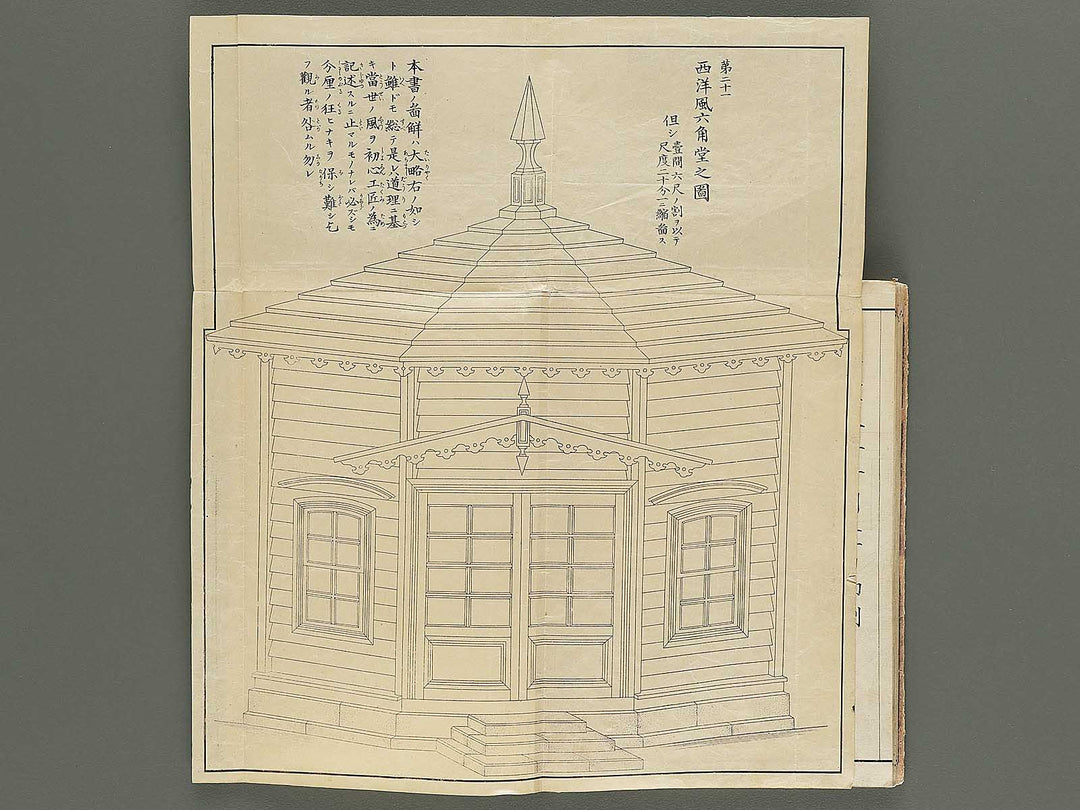 第二十一
西洋風六角堂之圖
但シ壹間六尺ノ割ヲ以テ
尺度二十分一ニ縮啚ス
本書ノ啚解ハ大略右ノ如シ
ト雖ドモ総テ是レ道理ニ基
キ當世ノ風ヲ初心工匠ノ為ニ
記述スルニ止マルモノナレバ必ズシモ
分厘ノ狂ヒナキヲ保シ難シ乞
フ觀ル者咎ムル勿レ